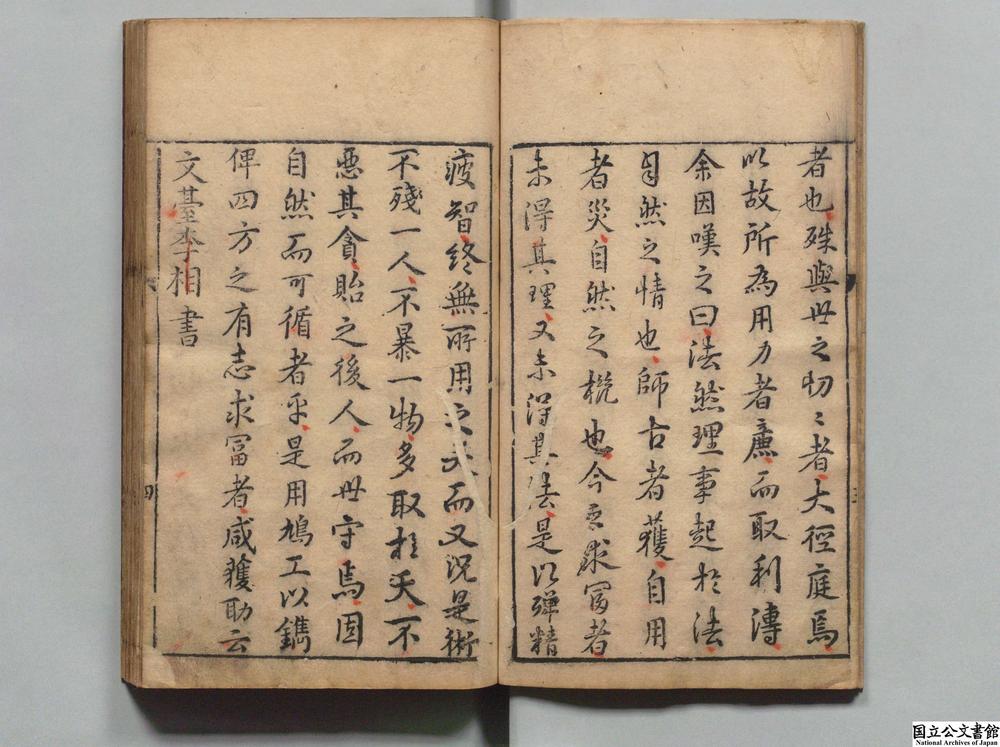 者也殊與世之切〻者大徑庭焉
以故所為用力者廉而取利溥
余因嘆之曰法然理事起於法
自然之情也師古者獲自用
者災自然之槩也今之求富者
未得其理又未得其法是以殫精
疲智終無所用之夫而又況是術
不殘一人不暴一物多取於天不
惡其貪貽之後人而世守焉固
自然而可循者乎是用鳩工以鐫
俾四方之有志求富者咸獲助云
文臺李相書
四
国立公文書館
National Archives of Japan